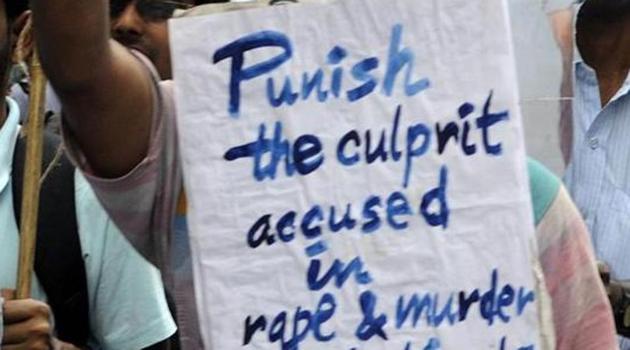 Punish
the culprit
accused
in
rape & murder